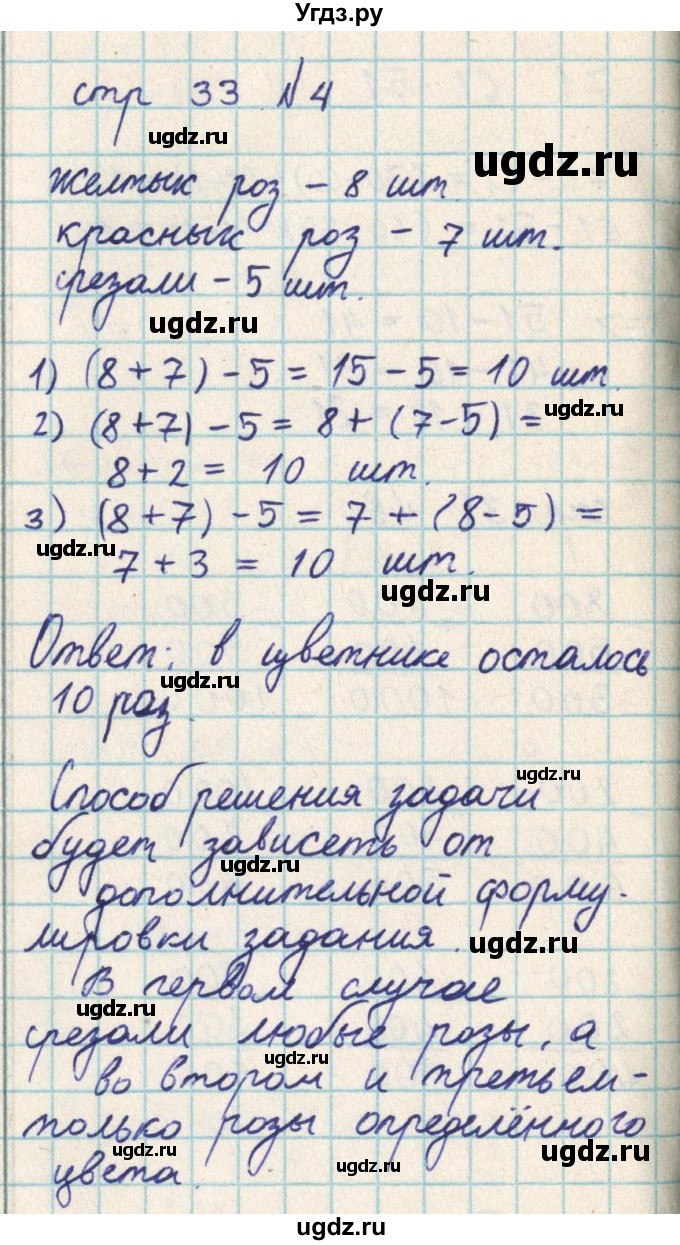 Угдз.ру
стр 33 №4
ugdz.ru
ugdz.ru
желтых роз - 8 шт.
красных роз - 7 шт.
срезали - 5 шт.
ugdz.ru
1) (8+7)-5 = 15-5 = 10 шт.
ugdz.ru
2) (8+7)-5 = 8+(7-5) =
8+2 = 10 шт.
3) (8+7)-5 = 7+(8-5) =
ugdz.ru
7+3 = 10 шт.
ugdz.ru
Ответ: в цветнике осталось
ugdz.ru
10 роз.
ugdz.ru
Способ решения задачи
будет зависеть от
ugdz.ru
дополнительной форму-
лировки задания.
ugdz.ru
В первом случае
ugdz.ru
срезали любые розы, а
ugdz.ru
во втором и третьем -
только розы определённого
ugdz.ru
цвета.
ugdz.ru
ugdz.ru